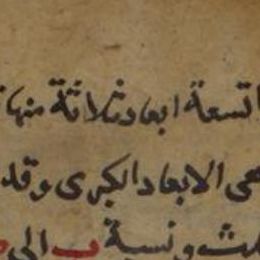 تسعة ابعاد ثلاثة منها
هى الابعاد الكبرى وقد
ثلث ونسبة ب الى